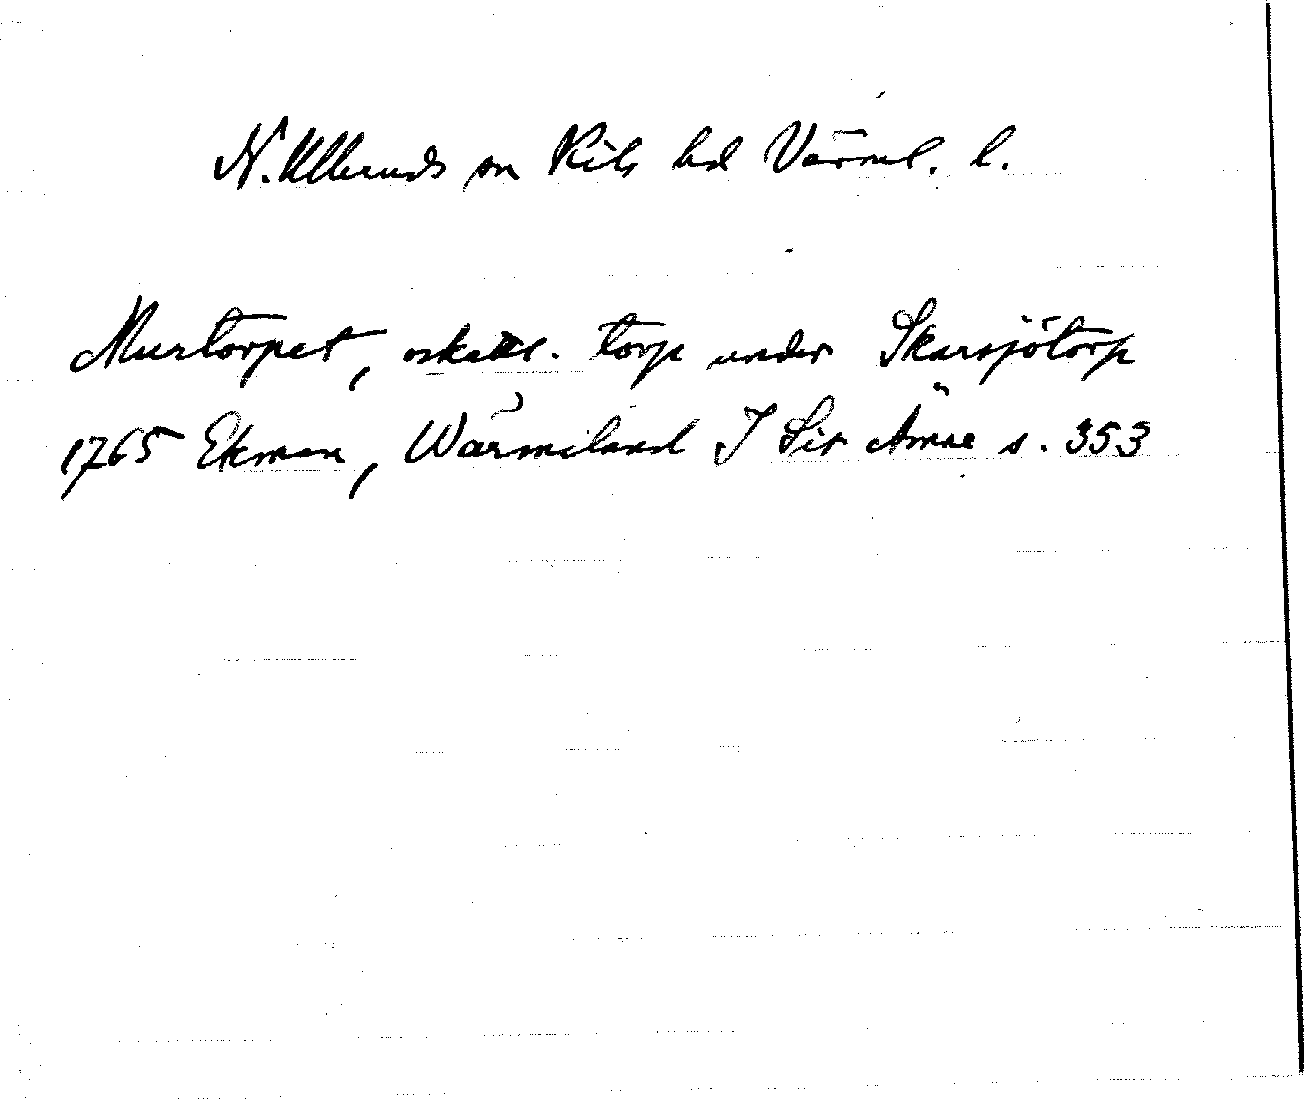 N. Ulleruds sn Kils hd Värml. l.
Murtorpet, oskattl. torp under Skarsjötorp
1765 Ekman, Wärmeland I Sir Ämne s. 353